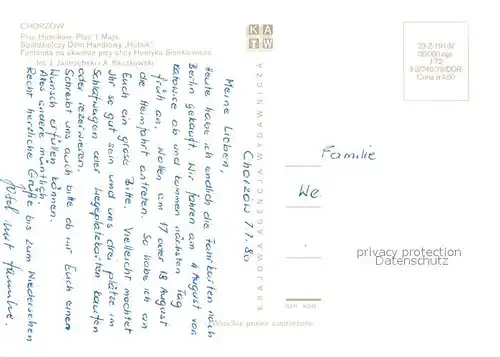 CHORZÓW
Plac Hutników. Plac 1 Maja.
Spółdzielczy Dom Handlowy „Hutnik".
Fontanna na skwerze przy ulicy Henryka Sienkiewicza
fot. J. Jastrzębski i A. Kaczkowski
KA
TW
KRAJOWA AGENCJA WYDAWNICZA
23-Z-19
30 000 egz.
J-72
Cena zł 4,50
Chorzów 7 7. 80
Meine Lieben,
Heute habe ich endlich die Fahrkarten nach
Berlin gekauft. Wir fahren am 4 August von
Katowice ab und kommen nächsten Tag
früh an. Wollen am 17 oder 18 August
die Heimfahrt antreten. So habe ich an
Euch ein grosse Bitte. Vielleicht möchtet
Ihr so gut sein und uns drei plätze im
Schlafwagen oder Liegeplatzkarten kaufen
oder reservieren.
Schreibt uns auch bitte ob wir Euch einen
Wunsch erfüllen können.
Alles andere mündlich
Recht herzliche Grüße bis zum Wiedersehen
Josef mit Familie.
Familie
We
privacy protection
Datenschutz
Wszelkie prawa zastrzeżone